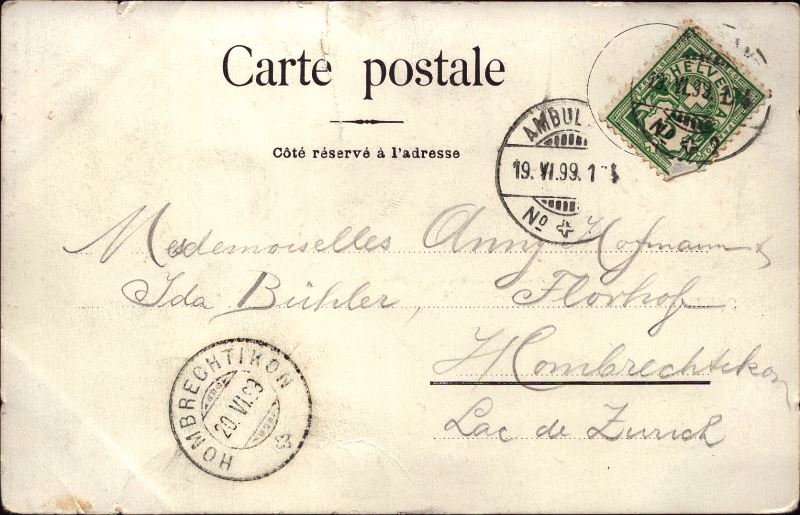 Carte postale
Côté réservé à l'adresse
HELVETIA
VI.99
AMBUL
19.VI.99.1
No
Mesdemoiselles Anny Hofmann &
Ida Bühler, Florhof
Hombrechtikon
Lac de Zurich
HOMBRECHTIKON
20.VI.99